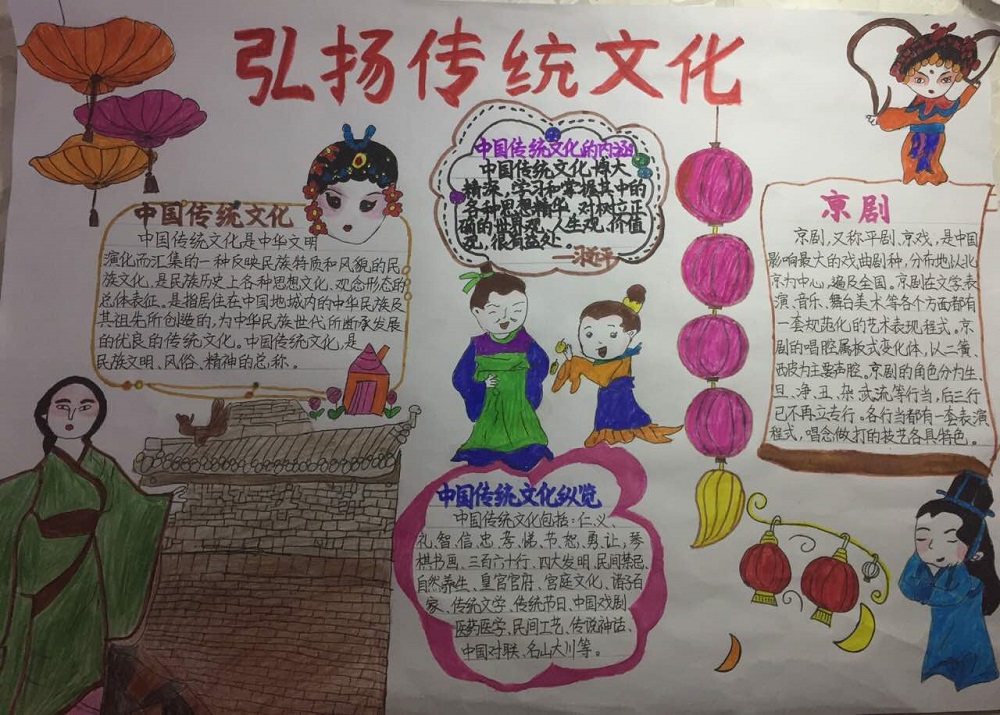 弘扬传统文化
中国传统文化
中国传统文化是中华文明
演化而汇集的一种反映民族特质和风貌的民
族文化,是民族历史上各种思想文化、观念形态的
总体表征。是指居住在中国地域内的中华民族及
其祖先所创造的,为中华民族世代所断承发展
的优良的传统文化。中国传统文化,是
民族文明、风俗、精神的总称。
中国传统文化的内涵
中国传统文化博大
精深,学习和掌握其中的
各种思想精华,对树立正
确的世界观、人生观、价值
观,很有益处。
——习近平
中国传统文化纵览
中国传统文化包括:仁、义、
礼、智、信、忠、孝、悌、节、恕、勇、让,琴
棋书画、三百六十行、四大发明、民间禁忌、
自然养生、皇宫官府、宫庭文化、诸子百
家、传统文学、传统节日、中国戏剧、
医药医学、民间工艺、传说神话、
中国对联、名山大川等。
京剧
京剧,又称平剧、京戏,是中国
影响最大的戏曲剧种,分布地以北
京为中心,遍及全国。京剧在文学、表
演、音乐、舞台美术等各个方面都有
一套规范化的艺术表现程式。京
剧的唱腔属板式变化体,以二簧、
西皮为主要声腔。京剧的角色分为生、
旦、净、丑、杂、武、流等行当,后三行
已不再立专行。各行当都有一套表演
程式,唱念做打的技艺各具特色。